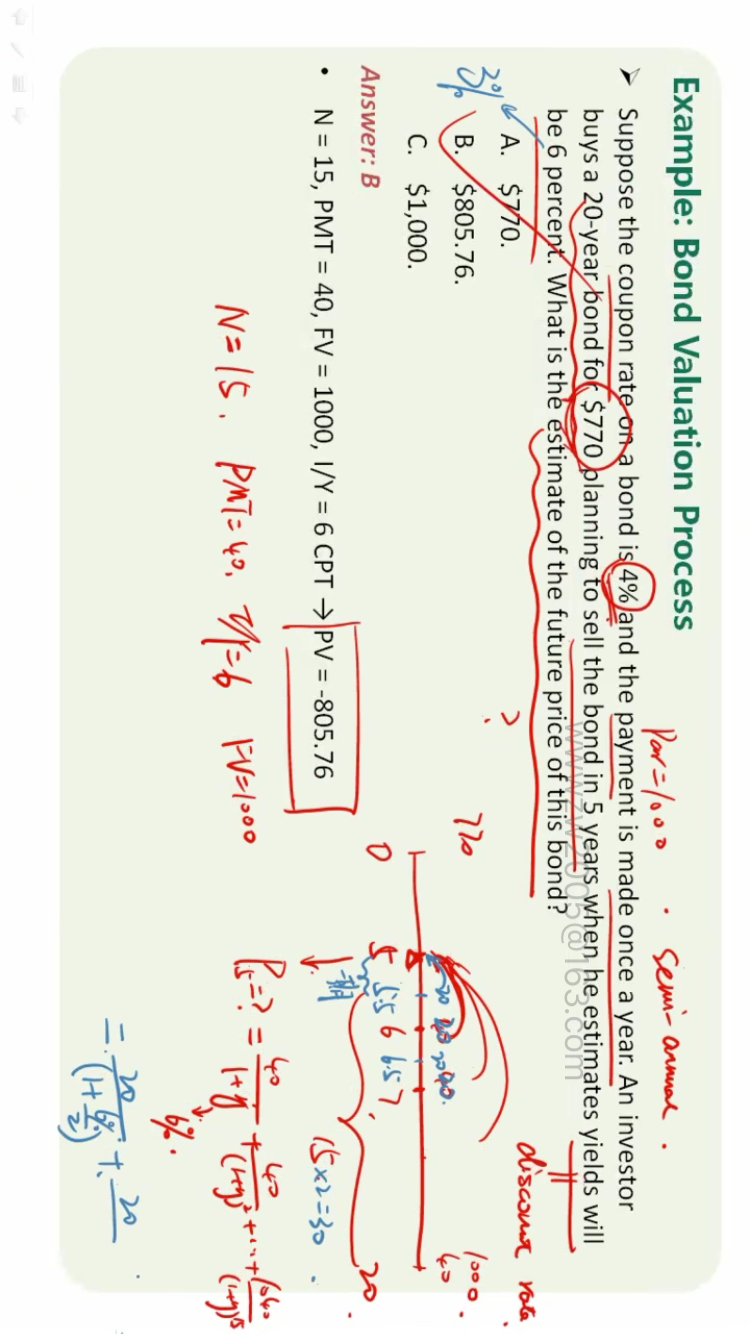 Example: Bond Valuation Process
Par=1000 . Semi-annual .
➢ Suppose the coupon rate on a bond is 4% and the payment is made once a year. An investor
buys a 20-year bond for $770 planning to sell the bond in 5 years when he estimates yields will
be 6 percent. What is the estimate of the future price of this bond?
www.zw2005@163.com
discount rate.
3%
A. $770.
B. $805.76.
C. $1,000.
?
770
1000
40
20 40 20 40
0 5 5.5 6 6.5 7 20
一期
15×2=30
Answer: B
• N = 15, PMT = 40, FV = 1000, I/Y = 6 CPT → PV = -805.76
P5=? = 40/(1+y) + 40/(1+y)² + ... + 1040/(1+y)15
6%.
N=15. PMT=40, I/Y=6 FV=1000
= 20/(1+6%/2) + 20